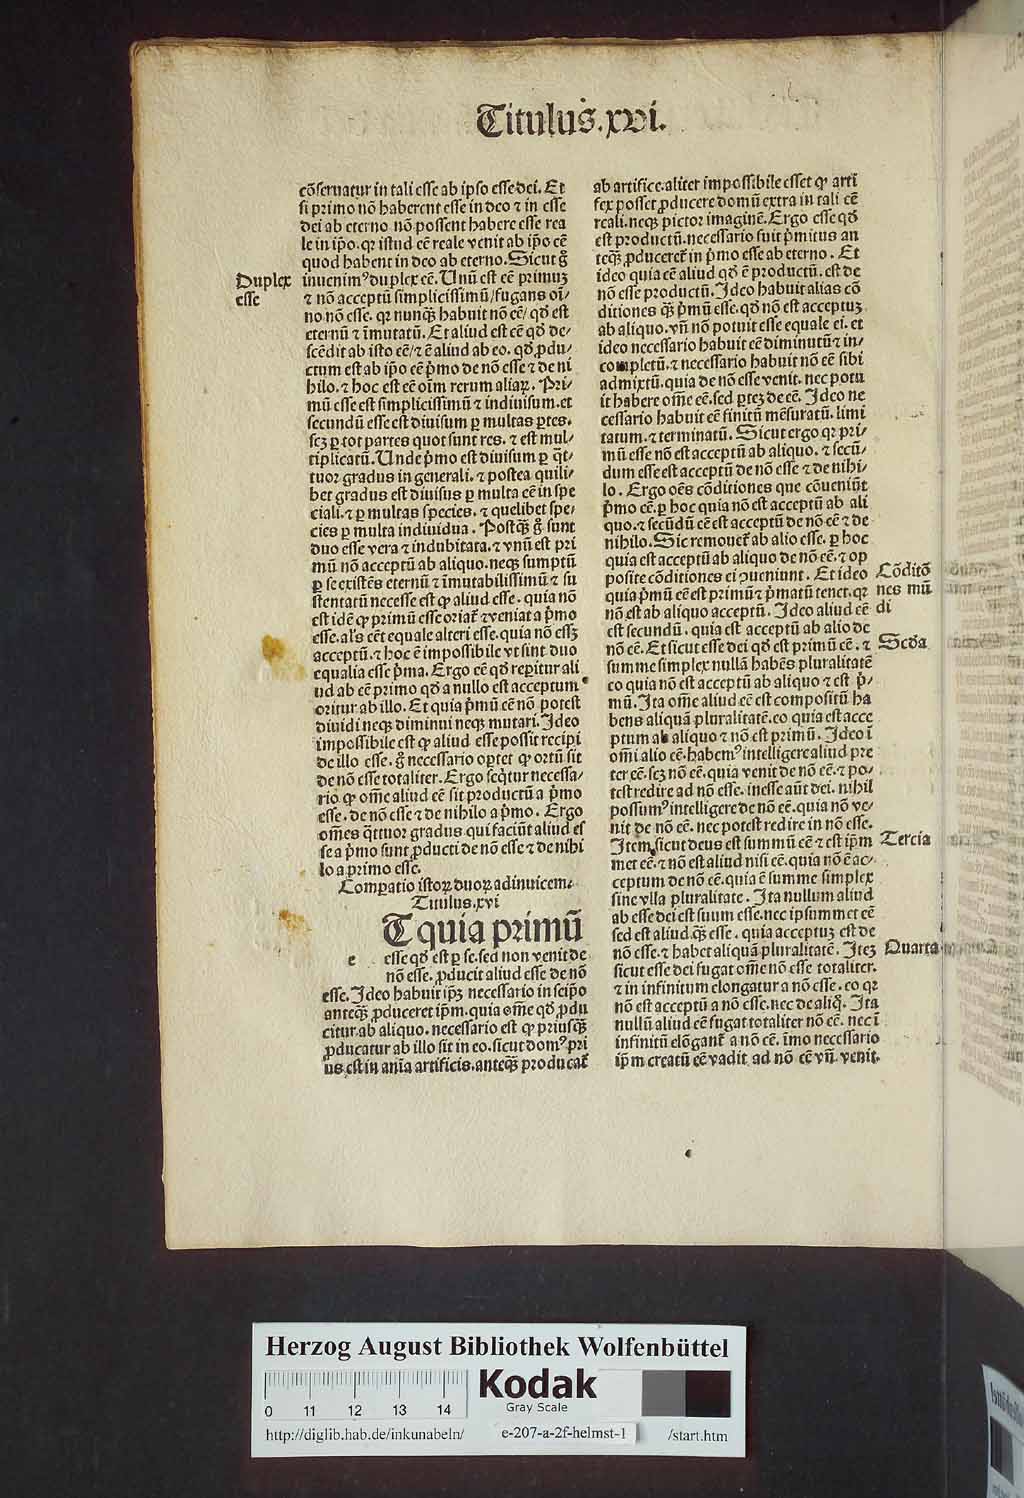 Titulus.xvi.
cõseruatur in tali esse ab ipso esse dei. Et
si primo nõ haberent esse in deo ⁊ in esse
dei ab eterno nõ possent habere esse rea
le in ip̃o. qr istud eẽ reale venit ab ip̃o eẽ
quod habent in deo ab eterno. Sicut g̃
Duplex
esse
inuenimꝰ duplex eẽ. Unũ est eẽ primuȝ
⁊ nõ acceptũ simplicissimũ/fugans oĩ-
no nõ esse. qr nunq̃ habuit nõ eẽ/ qd̃ est
eternũ ⁊ ĩmutatũ. Et aliud est eẽ qd̃ de-
scẽdit ab isto eẽ/⁊ ẽ aliud ab eo. qd̃ ꝓdu-
ctum est ab ip̃o eẽ p̃mo de nõ esse ⁊ de ni
hilo. ⁊ hoc est eẽ oĩm rerum aliaꝝ. Pri-
mũ esse est simplicissimũ ⁊ indiuisum. et
secundũ esse est diuisum ꝑ multas ꝑtes.
scȝ ꝑ tot partes quot sunt res. ⁊ est mul-
tiplicatũ. Unde p̃mo est diuisum ꝑ q̃t-
tuor gradus in generali. ⁊ postea quili-
bet gradus est diuisus ꝑ multa eẽ in spe
ciali. ⁊ ꝑ multas species. ⁊ quelibet spe-
cies ꝑ multa indiuidua. Postq̃ȝ g̃ sunt
duo esse vera ⁊ indubitata. ⁊ vnũ est pri
mũ nõ acceptũ ab aliquo. neqȝ sumptũ
ꝑ se existẽs eternũ ⁊ ĩmutabilissimũ ⁊ su
stentatũ necesse est ꝙ aliud esse. quia nõ
est idẽ ꝙ primũ esse oriat᷑ ⁊ veniat a p̃mo
esse. al's eẽt equale alteri esse. quia nõ esȝ
acceptũ. ⁊ hoc ẽ impossibile vt sint duo
equalia esse p̃ma. Ergo eẽ qd̃ reꝑitur ali
ud ab eẽ primo qd̃ a nullo est acceptum
oritur ab illo. Et quia p̃mũ eẽ nõ potest
diuidi neqȝ diminui neqȝ mutari. Ideo
impossibile est ꝙ aliud esse possit recipi
de illo esse. g̃ necessario oꝑtet ꝙ ortũ sit
de nõ esse totaliter. Ergo seq̃tur necessa-
rio ꝙ om̃e aliud eẽ sit productũ a p̃mo
esse. de nõ esse ⁊ de nihilo a p̃mo. Ergo
om̃es q̃ttuor gradus qui faciũt aliud es
se a p̃mo sunt ꝓducti de nõ esse ⁊ de nihi
lo a primo esse.
Comꝑatio istoꝝ duoꝝ adinuicem.
Titulus.xvi
T quia primũ
e esse qd̃ est ꝑ se. sed non venit de
nõ esse. ꝓducit aliud esse de nõ
esse. Ideo habuit ip̃ȝ necessario in seip̃o
anteq̃ȝ ꝓduceret ip̃m. quia om̃e qd̃ ꝓdu
citur ab aliquo. necessario est ꝙ priusq̃ȝ
ꝓducatur ab illo sit in eo. sicut domꝰ pri
us est in anĩa artificis. anteq̃ȝ producat᷑
ab artifice. aliter impossibile esset ꝙ arti
fex posset ꝓducere domũ extra in tali eẽ
reali. neqȝ pictor imaginẽ. Ergo esse qd̃
est productũ. necessario fuit p̃mitus an
teq̃ȝ ꝓduceret᷑ in p̃mo esse ab eterno. Et
ideo quia eẽ aliud qd̃ ẽ productũ. est de
nõ esse productũ. Ideo habuit alias cõ
ditiones q̃ȝ p̃mũ esse. qd̃ nõ est acceptuȝ
ab aliquo. vñ nõ potuit esse equale ei. et
ideo necessario habuit eẽ diminutũ ⁊ in-
completũ. ⁊ necessario habuit nõ eẽ sibi
admixtũ. quia de nõ esse venit. nec potu
it habere om̃e eẽ. sed ꝑteȝ de eẽ. Ideo ne
cessario habuit eẽ finitũ mẽsuratũ. limi
tatum. ⁊ terminatũ. Sicut ergo qr pri-
mũ esse nõ est acceptũ ab aliquo. ⁊ secũ-
dum esse est acceptũ de nõ esse ⁊ de nihi-
lo. Ergo oẽs cõditiones que cõueniũt
p̃mo eẽ. ꝑ hoc quia nõ est acceptũ ab ali
quo. ⁊ secũdũ eẽ est acceptũ de nõ eẽ ⁊ de
nihilo. Sic remouet᷑ ab alio esse. ꝑ hoc
quia est acceptũ ab aliquo de nõ eẽ. ⁊ op
posite cõditiones ei ꝯueniunt. Et ideo
Cõditõ
nes mũ
di
quia p̃mũ eẽ est primũ ⁊ p̃matũ tenet. qr
nõ est ab aliquo acceptũ. Ideo aliud eẽ
est secundũ. quia est acceptũ ab alio de
Scd̃a
nõ eẽ. Et sicut esse dei qd̃ est primũ eẽ. ⁊
summe simplex nullã habẽs pluralitatẽ
eo quia nõ est acceptũ ab aliquo ⁊ est p̃-
mũ. Ita om̃e aliud eẽ est compositũ ha
bens aliquã pluralitatẽ. eo quia est acce
ptum ab aliquo ⁊ nõ est primũ. Ideo ĩ
om̃i alio eẽ. habemꝰ intelligere aliud pre
ter eẽ. scȝ nõ eẽ. quia venit de nõ eẽ. ⁊ po-
test redire ad nõ esse. inesse aũt dei. nihil
possumꝰ intelligere de nõ eẽ. quia nõ ve-
nit de nõ eẽ. nec potest redire in nõ esse.
Tercia
Item sicut deus est summũ eẽ ⁊ est ip̃m
met eẽ. ⁊ nõ est aliud nisi eẽ. quia nõ ẽ ac-
ceptum de nõ eẽ. quia ẽ summe simplex
sine vlla pluralitate. Ita nullum aliud
ab esse dei est suum esse. nec ipsummet eẽ
sed est aliud q̃ȝ esse. quia acceptuȝ est de
Quarta
nõ esse. ⁊ habet aliquã pluralitatẽ. Iteȝ
sicut esse dei fugat om̃e nõ esse totaliter.
⁊ in infinitum elongatur a nõ esse. eo qr
nõ est acceptũ a nõ esse. nec de aliq̃. Ita
nullũ aliud eẽ fugat totaliter nõ eẽ. nec ĩ
infinitũ elõgant᷑ a nõ eẽ. ĩmo necessario
ip̃m creatũ eẽ vadit ad nõ eẽ vñ venit.
Herzog August Bibliothek Wolfenbüttel
Kodak
Gray Scale
0 11 12 13 14
http://diglib.hab.de/inkunabeln/ e-207-a-2f-helmst-1 /start.htm